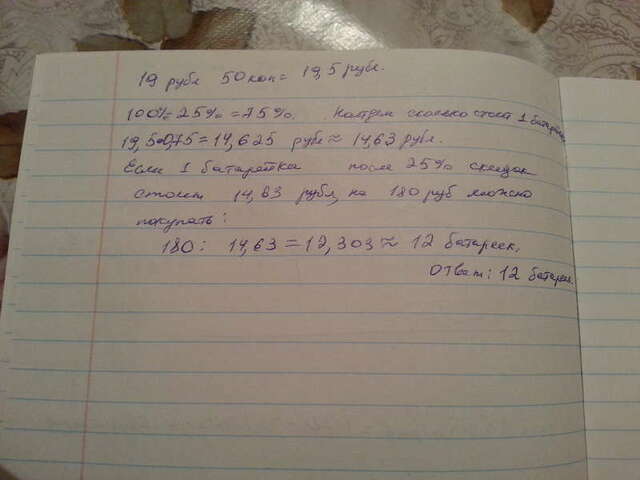 19 рубл 50 коп = 19,5 рубл.
100% - 25% = 75%. Найдем сколько стоит 1 батарейк
19,5•0,75 = 14,625 рубл ≈ 14,63 рубл.
Если 1 батарейка после 25% скидок
стоит 14,63 рубл, на 180 руб можно
покупать:
180 : 14,63 = 12,303 ≈ 12 батареек.
Ответ: 12 батареек.